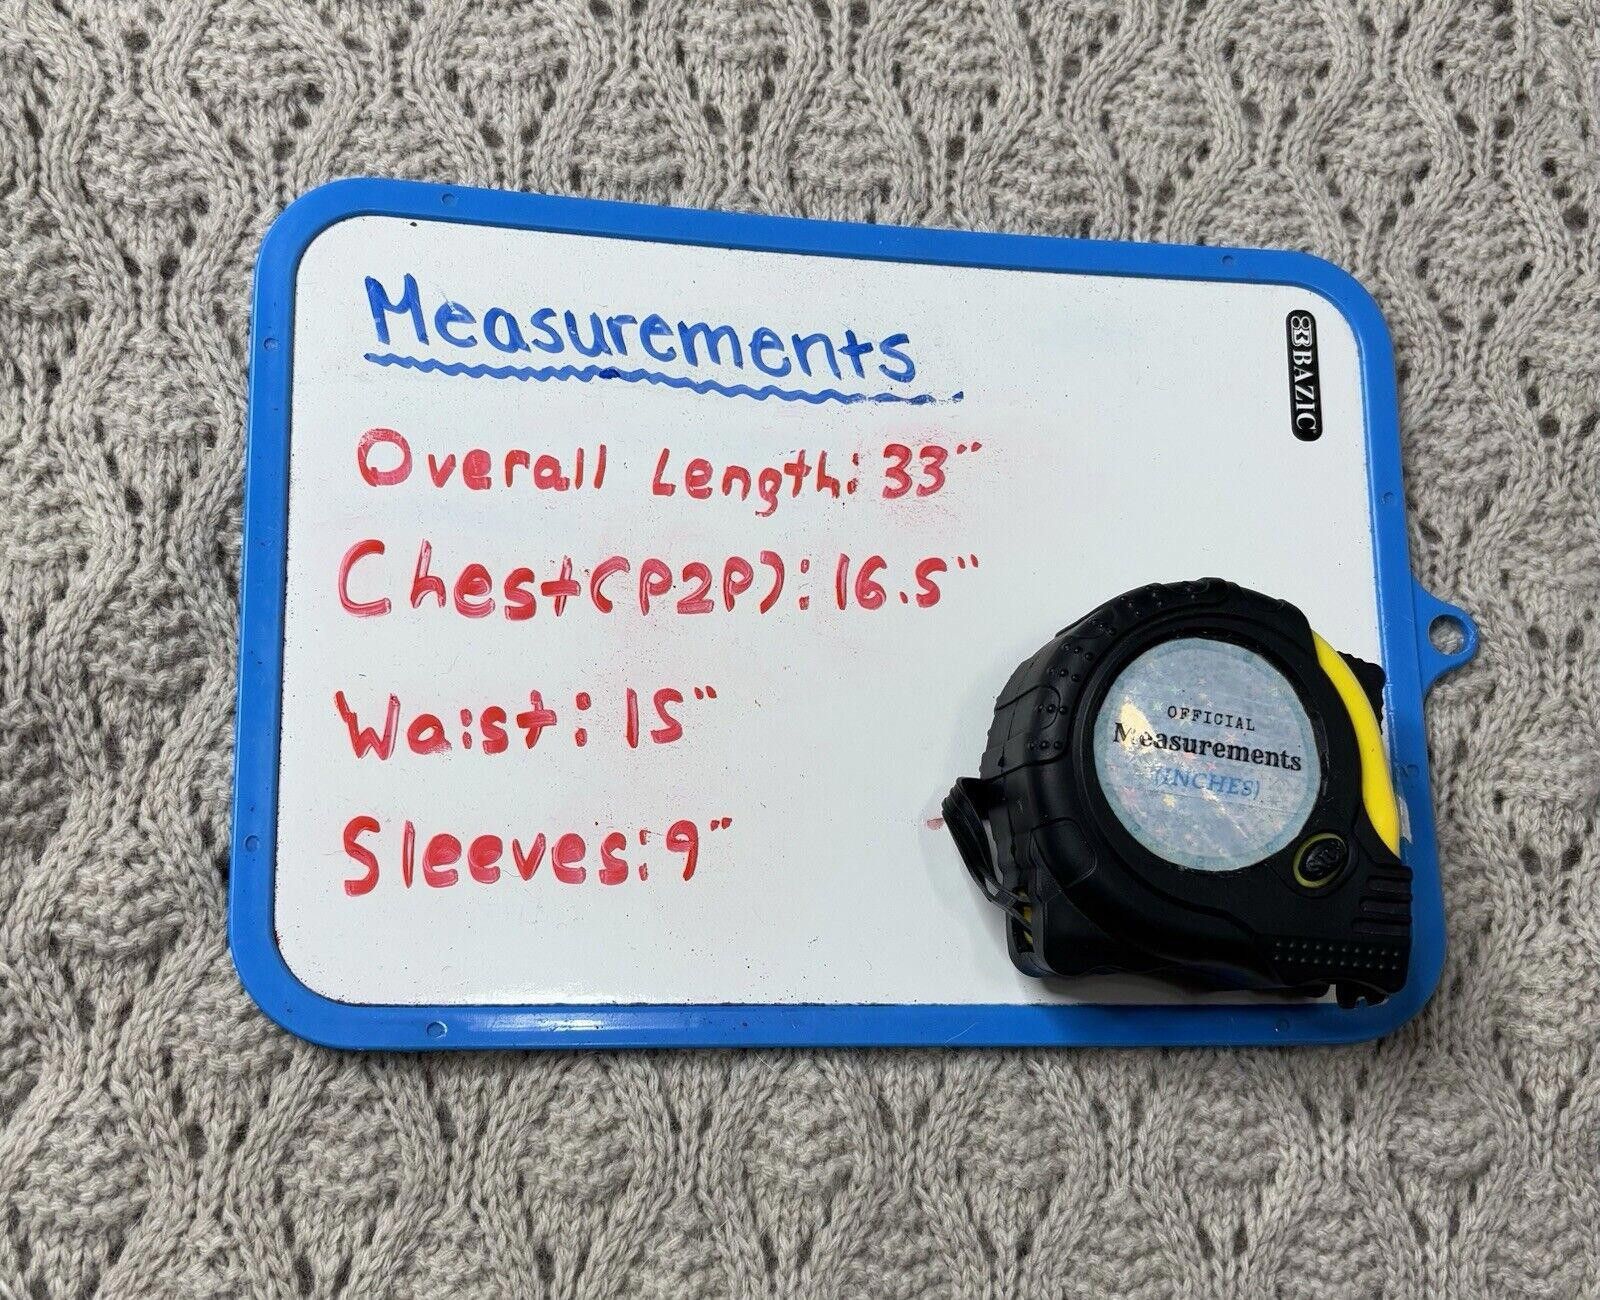 Measurements
Overall Length: 33"
Chest(P2P): 16.5"
Waist: 15"
Sleeves: 9"
BAZIC
OFFICIAL
Measurements
(INCHES)